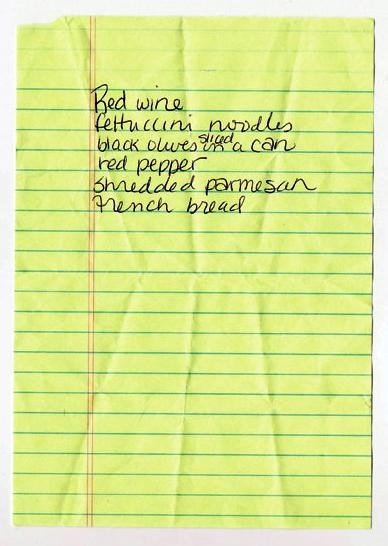 Red wine
fettuccini noodles
black olives sliced in a can
red pepper
shredded parmesan
French bread